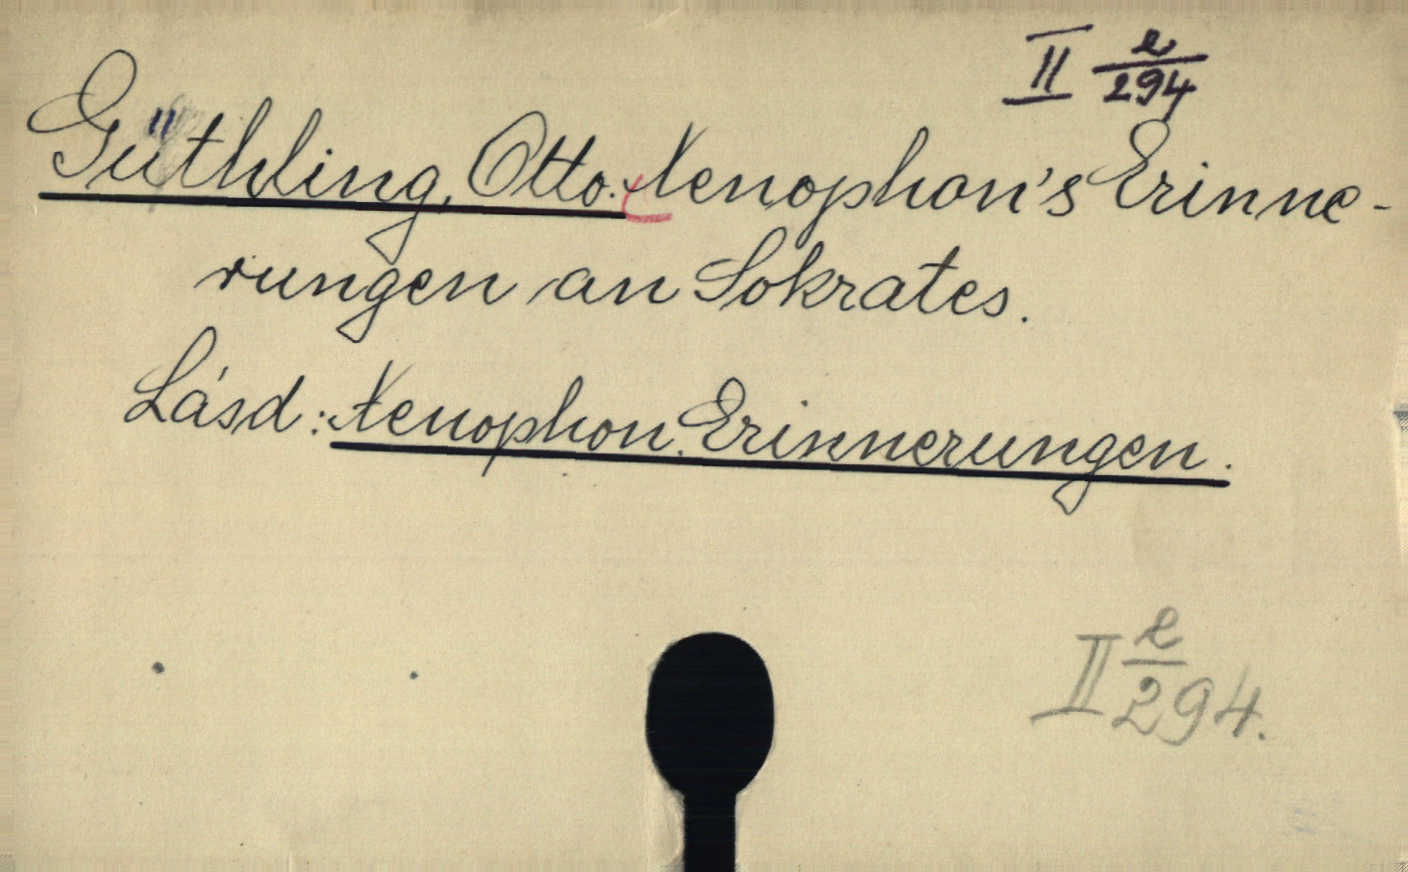 II e/294
Güthling, Otto. Xenophon's Erinne-
rungen an Sokrates.
Lásd: Xenophon. Erinnerungen.
II e/294.